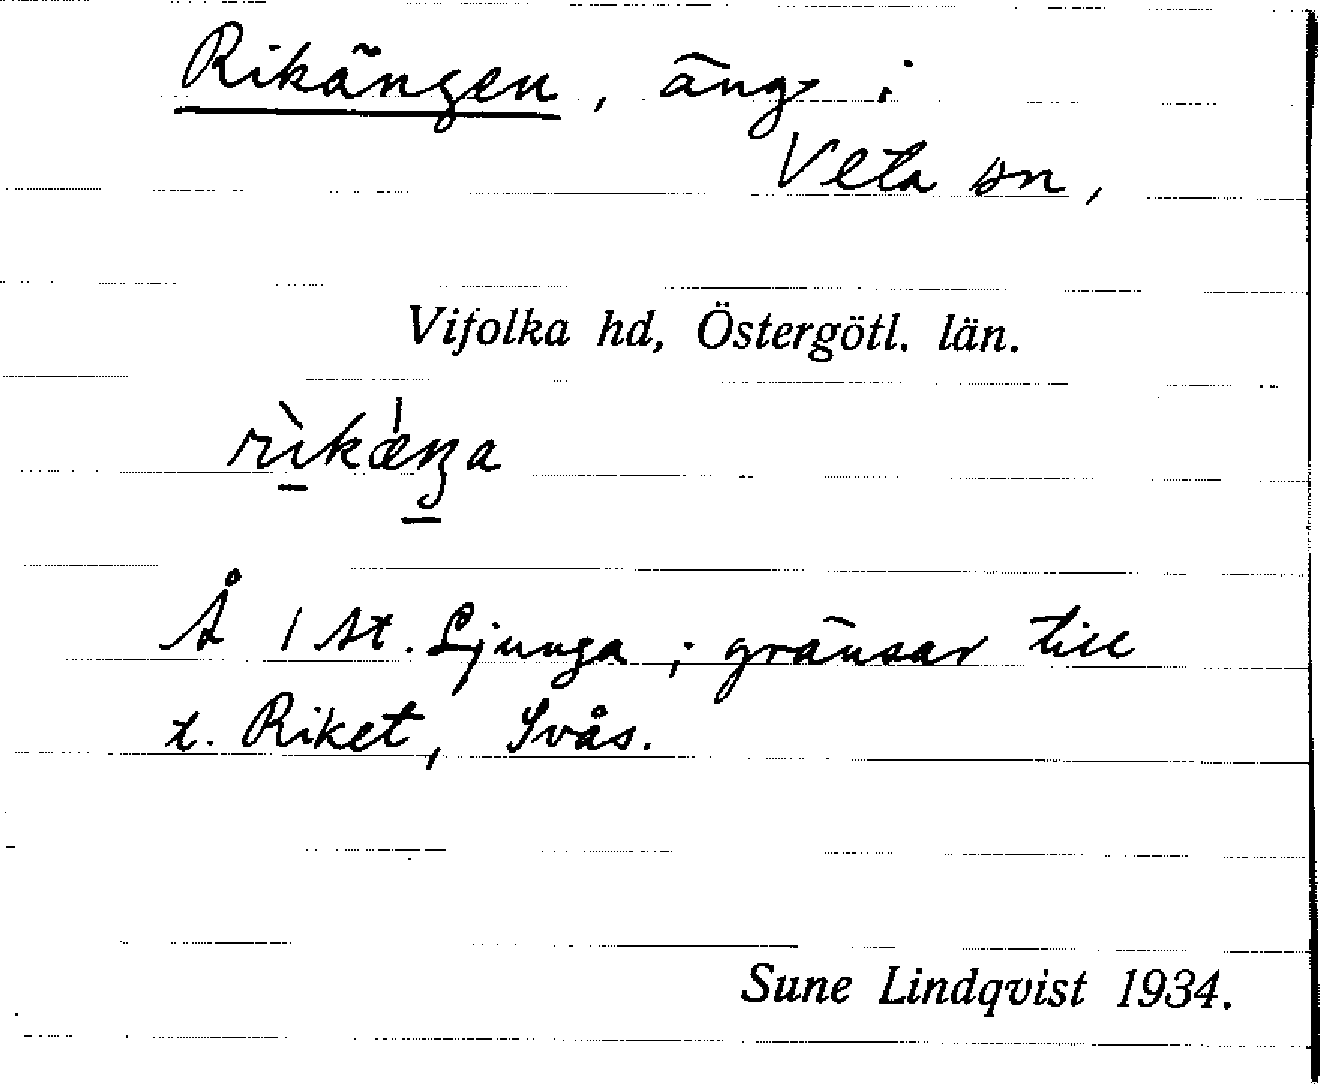 Rikängen, äng i
Veta sn,
Vifolka hd, Östergötl. län.
rìkǽŋa
Å 1 St. Ljunga; gränsar till
t. Riket, Svås.
Sune Lindqvist 1934.